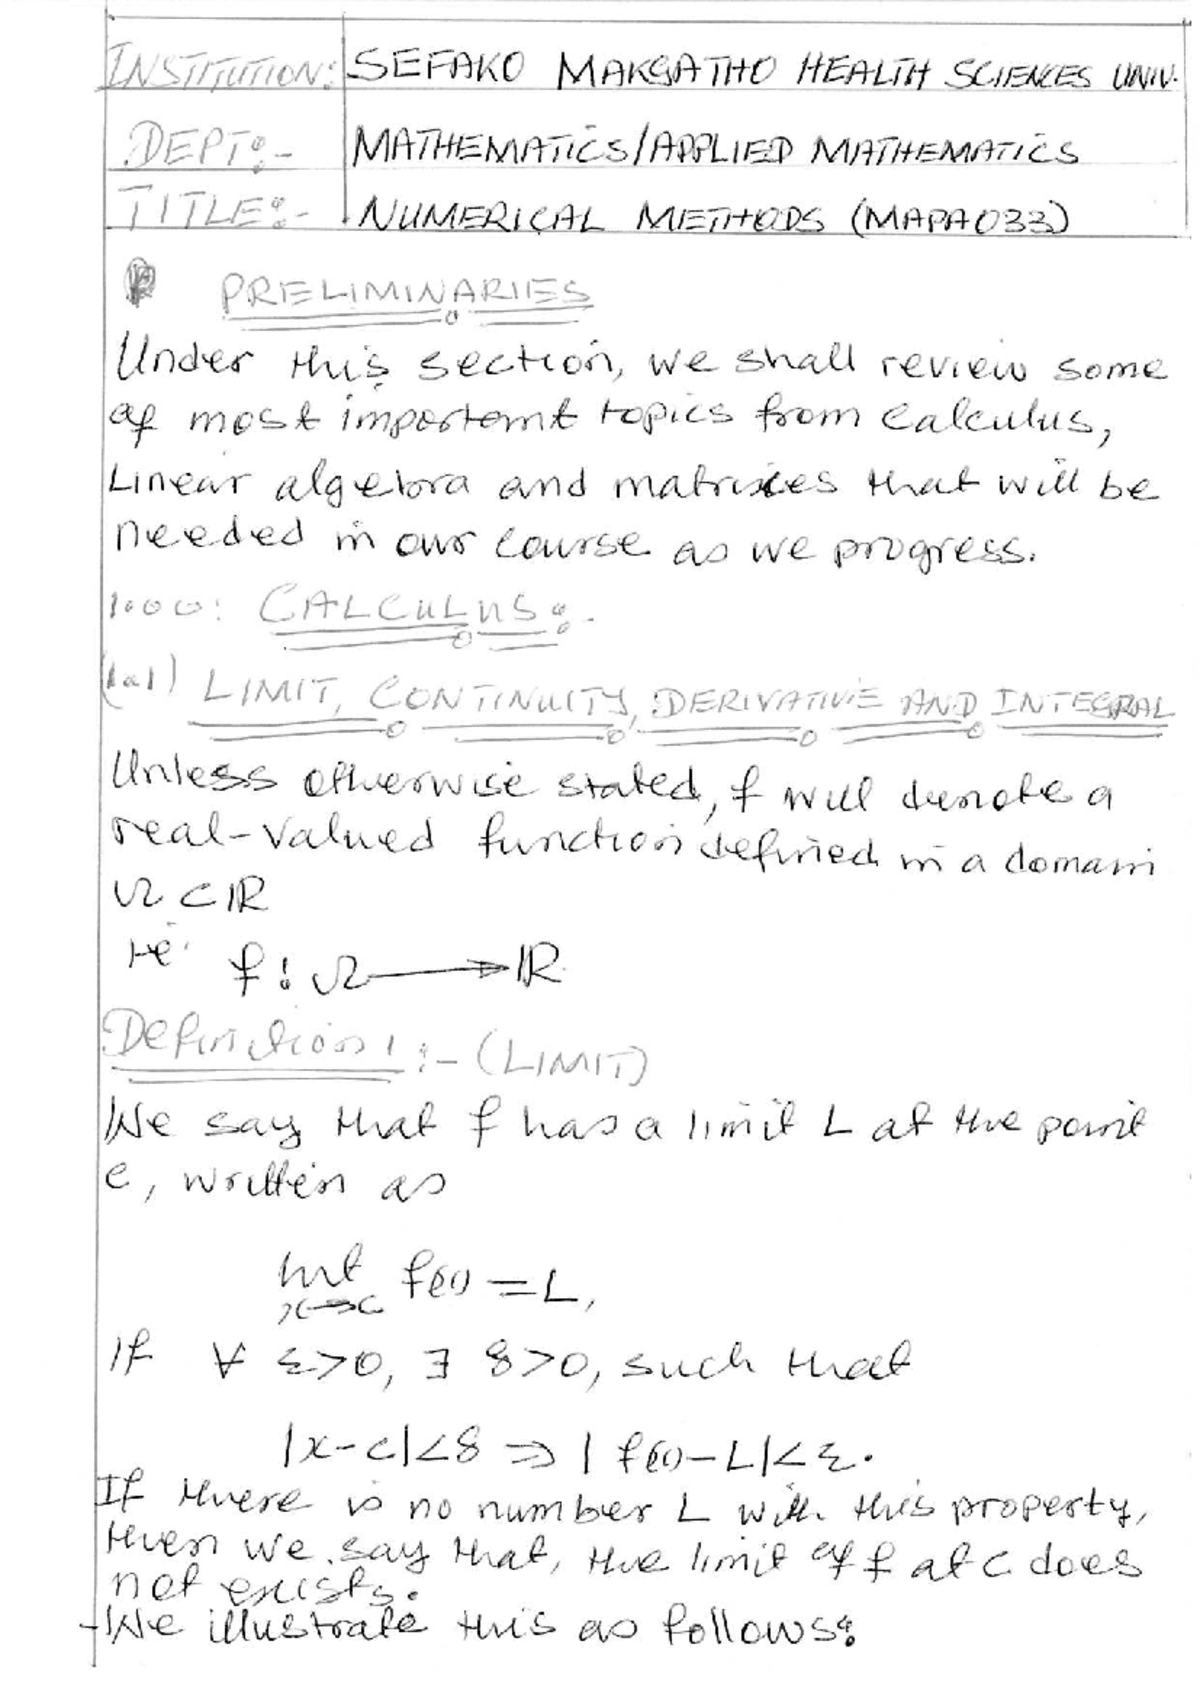 INSTITUTION: SEFAKO MAKGATHO HEALTH SCIENCES UNIV.
DEPT:- MATHEMATICS/APPLIED MATHEMATICS
TITLE:- NUMERICAL METHODS (MAPA033)
PRELIMINARIES
Under this section, we shall review some
of most important topics from Calculus,
Linear algebra and matrices that will be
needed in our course as we progress.
1.00: CALCULUS:-
(1.1) LIMIT, CONTINUITY, DERIVATIVE AND INTEGRAL
Unless otherwise stated, f will denote a
real-valued function defined in a domain
Ω ⊂ ℝ
ie. f: Ω ⟶ ℝ
Definition 1:- (LIMIT)
We say that f has a limit L at the point
c, written as
lmt f(x) = L,
x→c
If ∀ ε>0, ∃ δ>0, such that
|x-c|<δ ⇒ | f(x)-L|<ε.
If there is no number L with this property,
then we say that, the limit of f at c does
not exists.
-We illustrate this as follows: